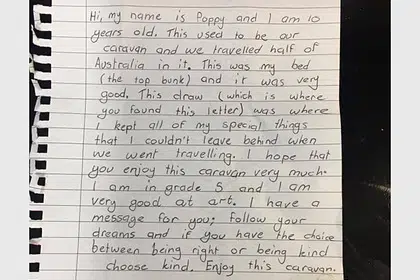 Hi, my name is Poppy and I am 10
years old. This used to be our
caravan and we travelled half of
Australia in it. This was my bed
(the top bunk) and it was very
good. This draw (which is where
you found this letter) was where
I kept all of my special things
that I couldn't leave behind when
we went travelling. I hope that
you enjoy this caravan very much.
I am in grade 5 and I am
very good at art. I have a
message for you: Follow your
dreams and if you have the choice
between being right or being kind
choose kind. Enjoy this caravan.